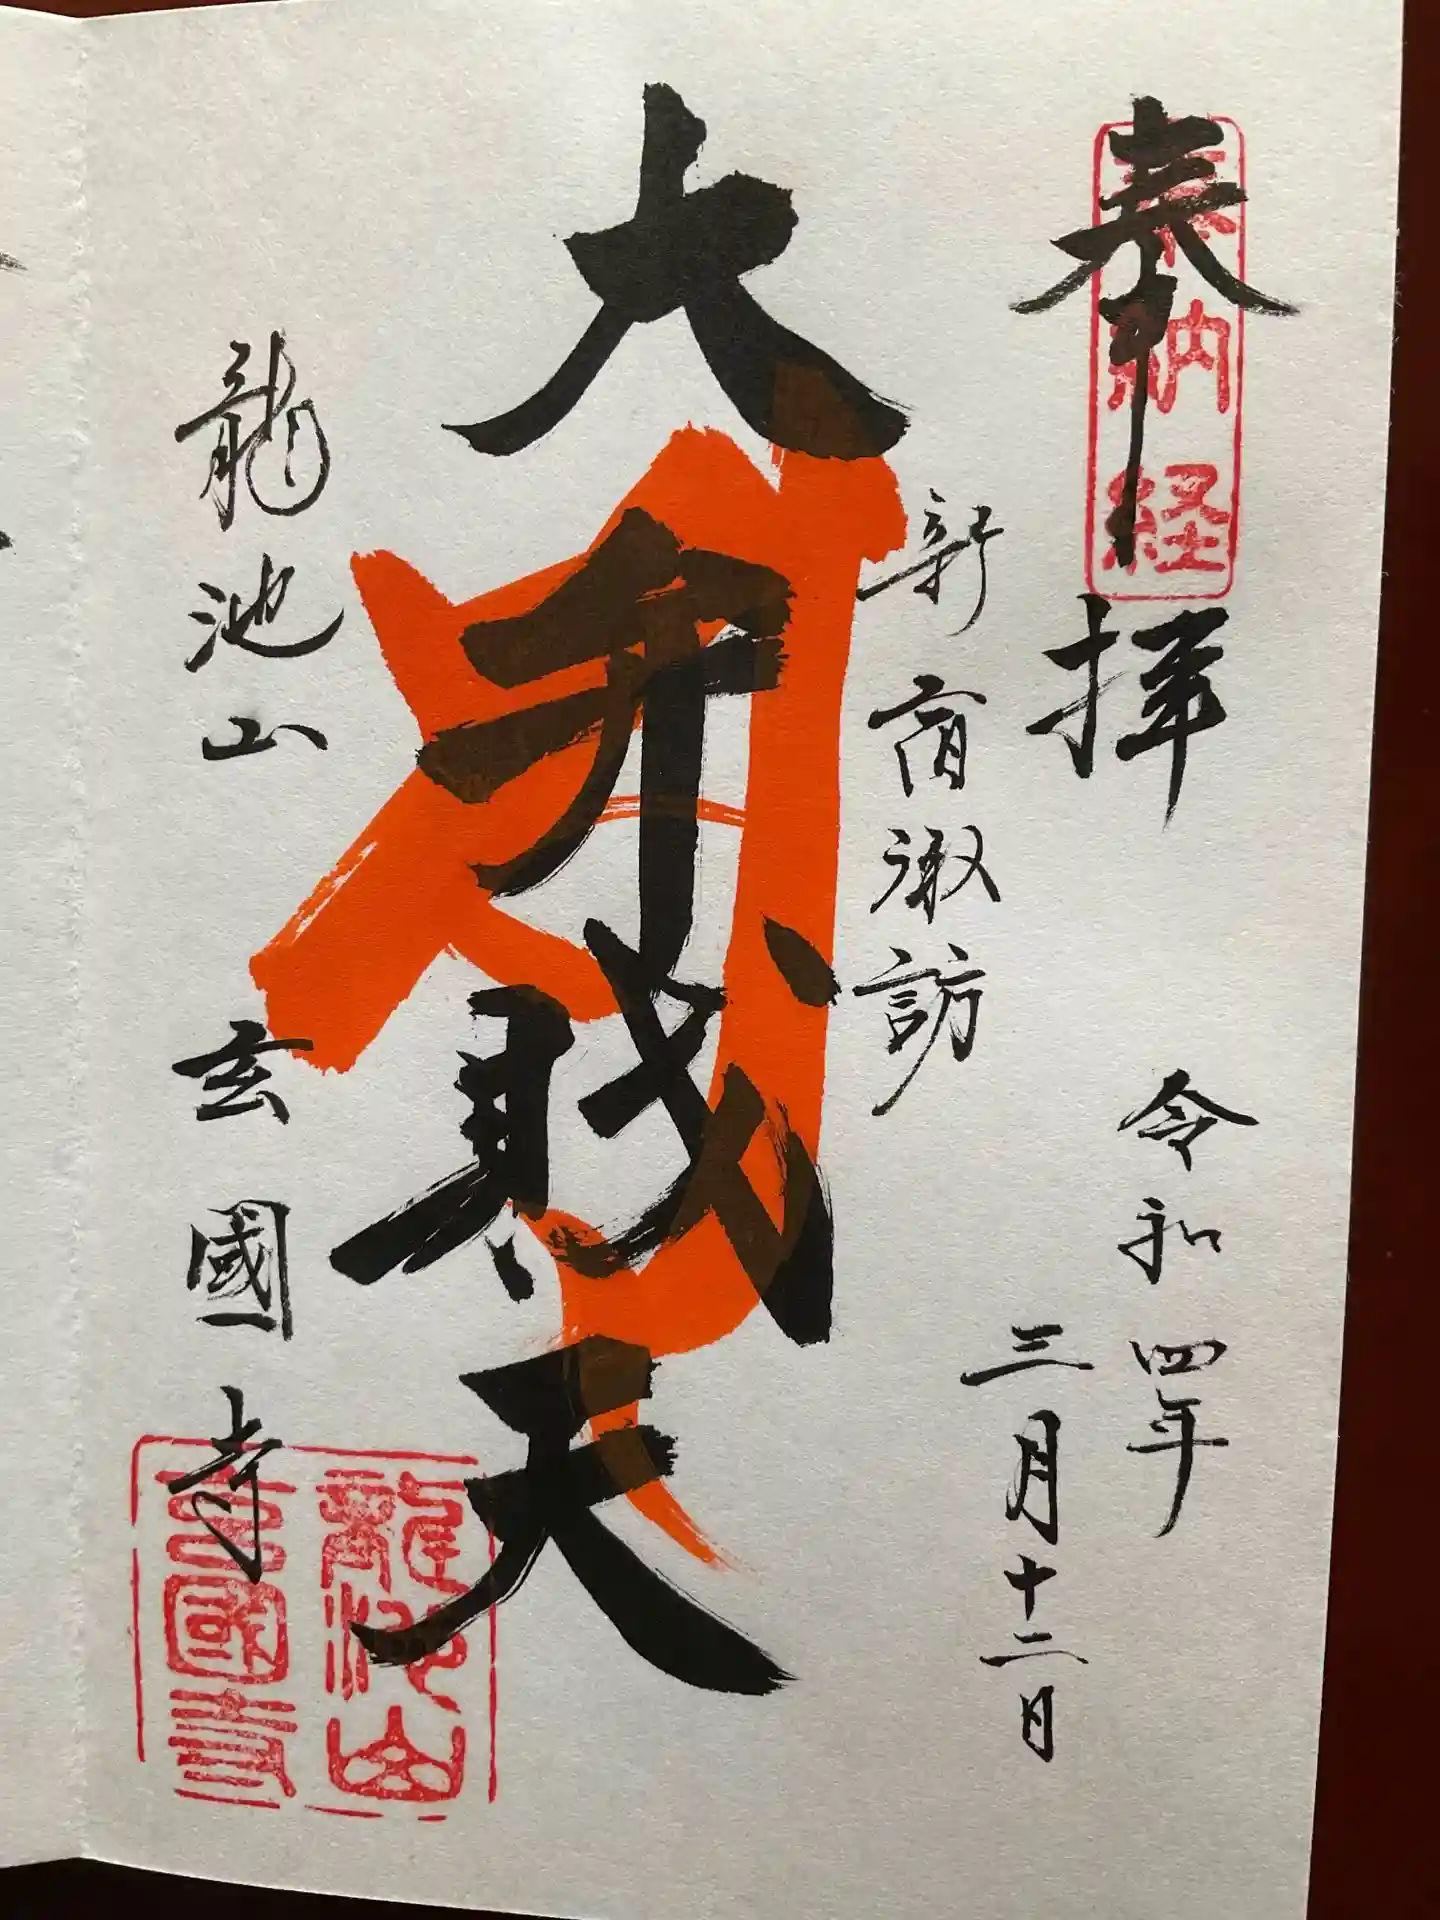 奉拝
奉納経
令和四年
三月十二日
新宿諏訪
大弁財天
龍池山
玄國寺
龍池山
玄國寺